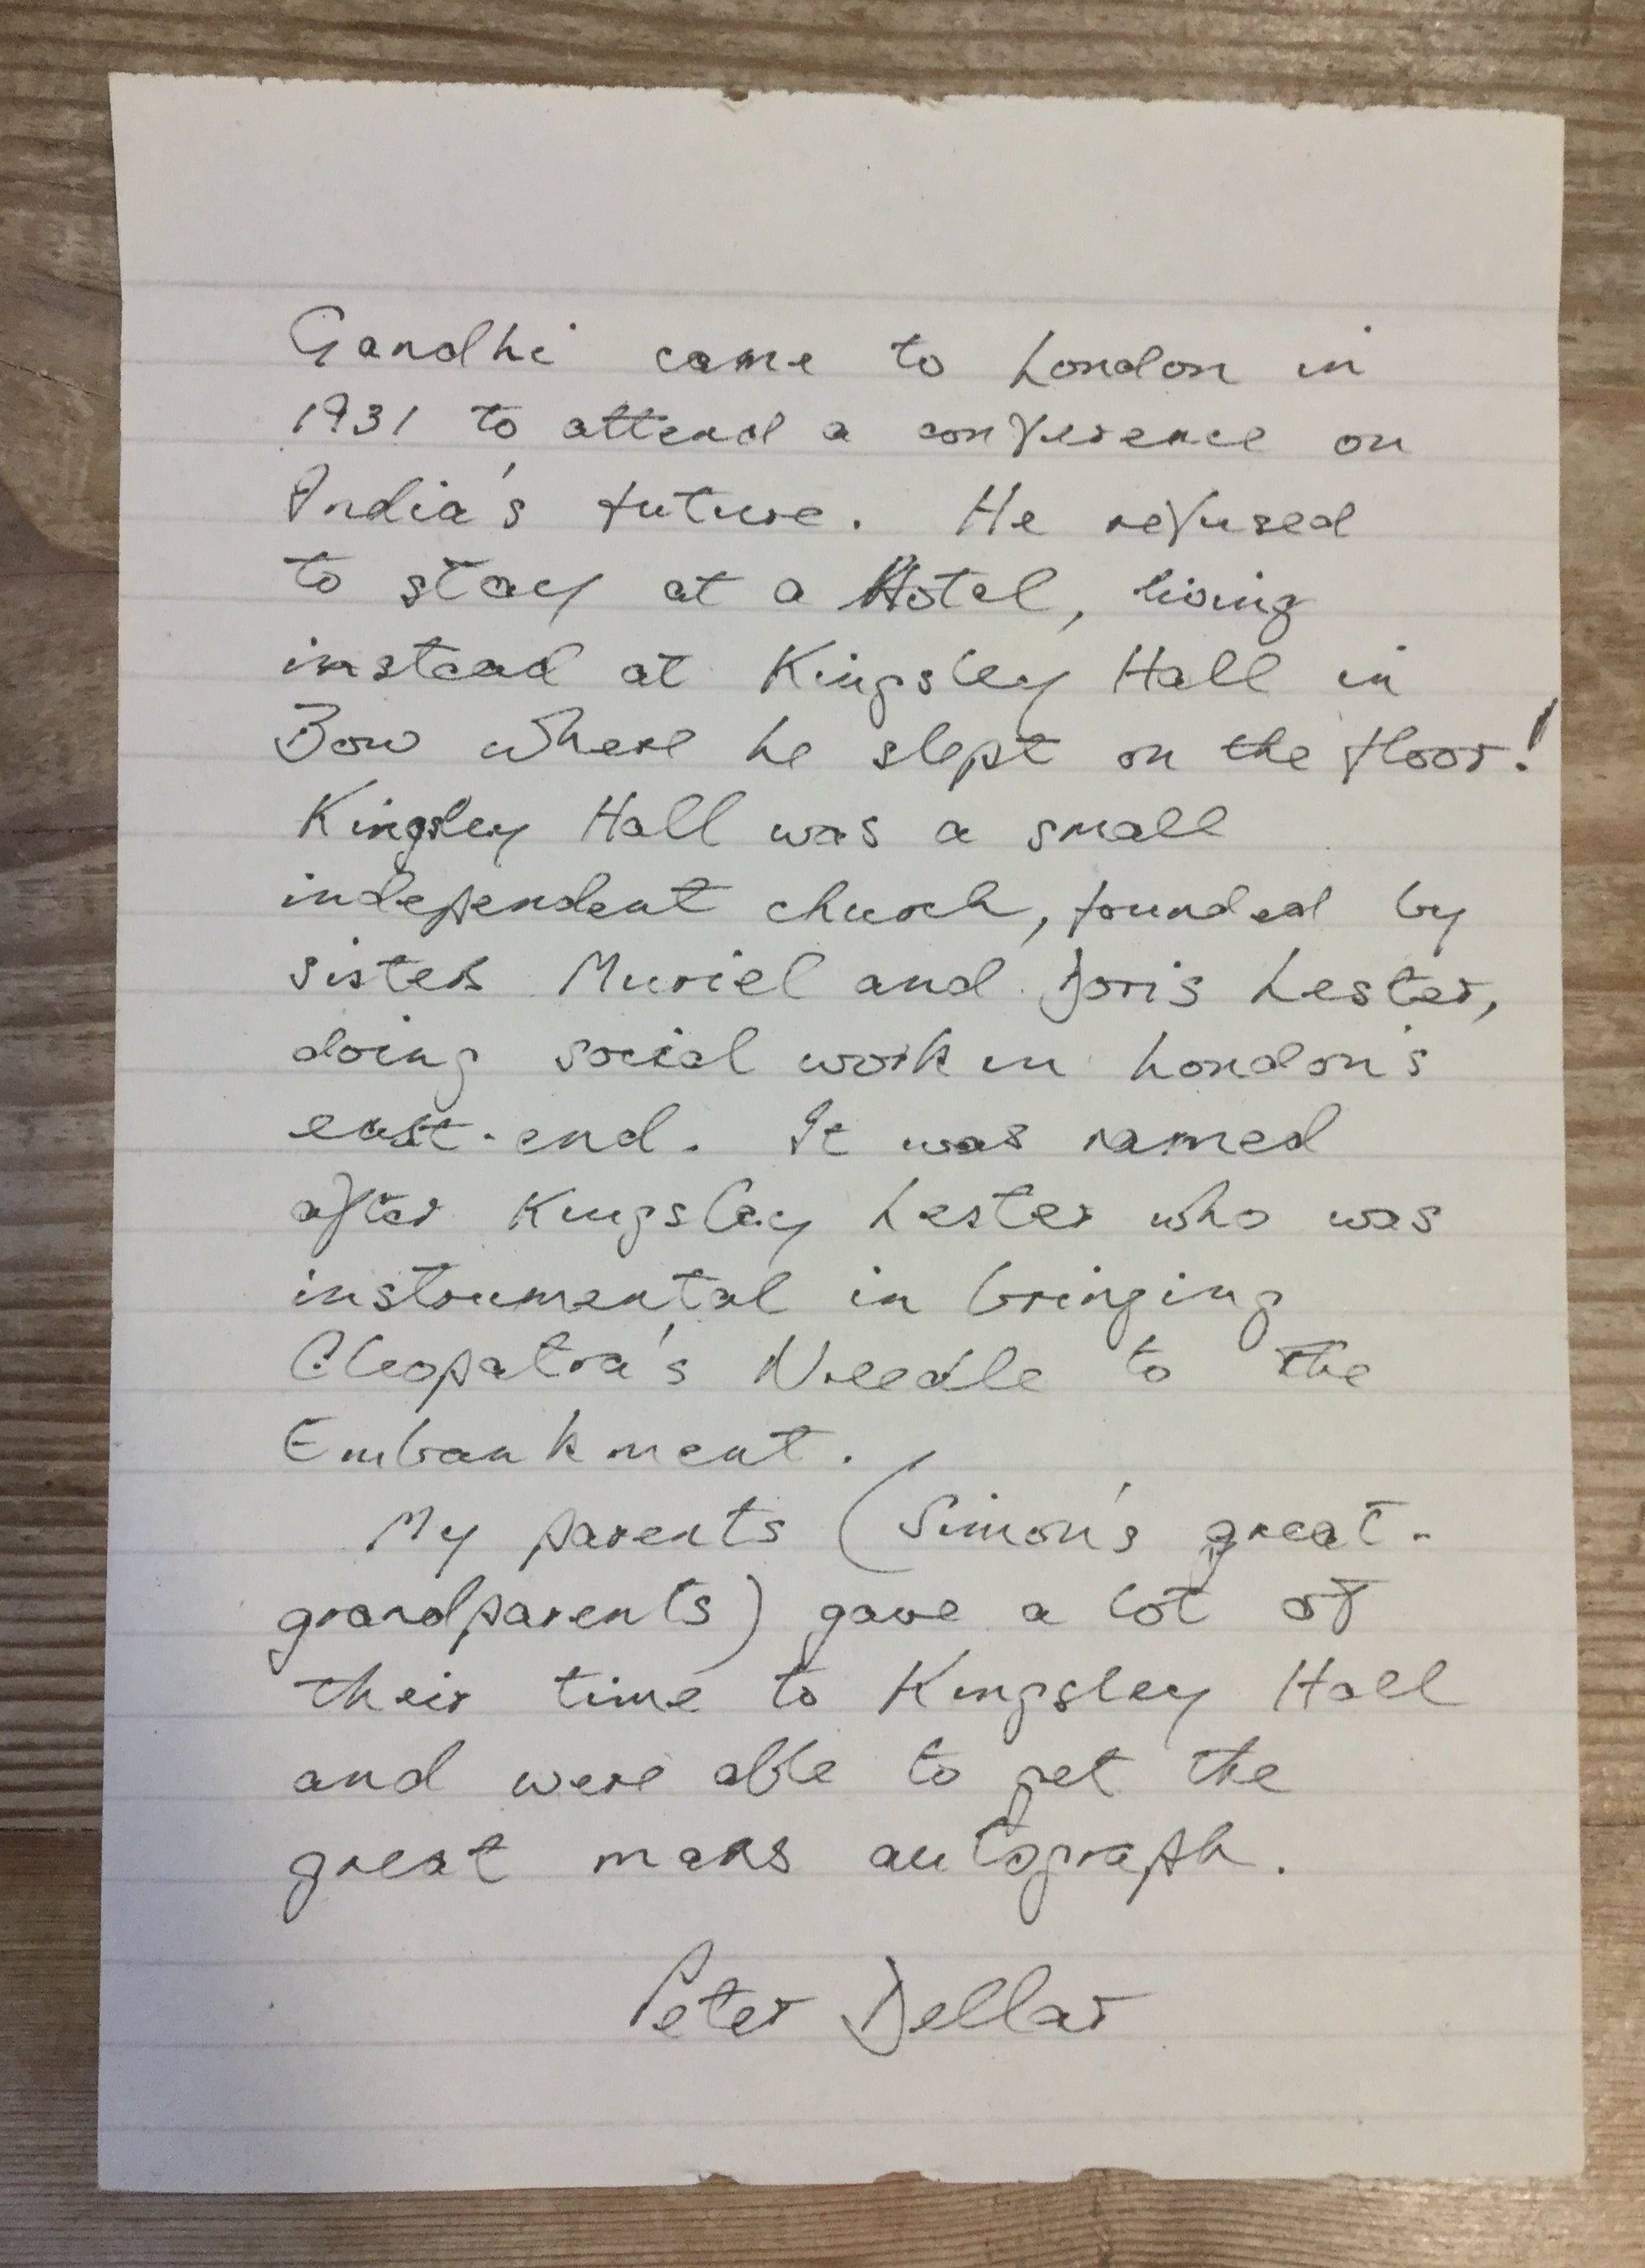 Gandhi came to London in
1931 to attend a conference on
India's future. He refused
to stay at a Hotel, living
instead at Kingsley Hall in
Bow where he slept on the floor!
Kingsley Hall was a small
independent church, founded by
sisters Muriel and Doris Lester,
doing social work in London's
east-end. It was named
after Kingsley Lester who was
instrumental in bringing
Cleopatra's Needle to the
Embankment.
My parents (Simon's great-
grandparents) gave a lot of
their time to Kingsley Hall
and were able to get the
great mans autograph.
Peter Dellar